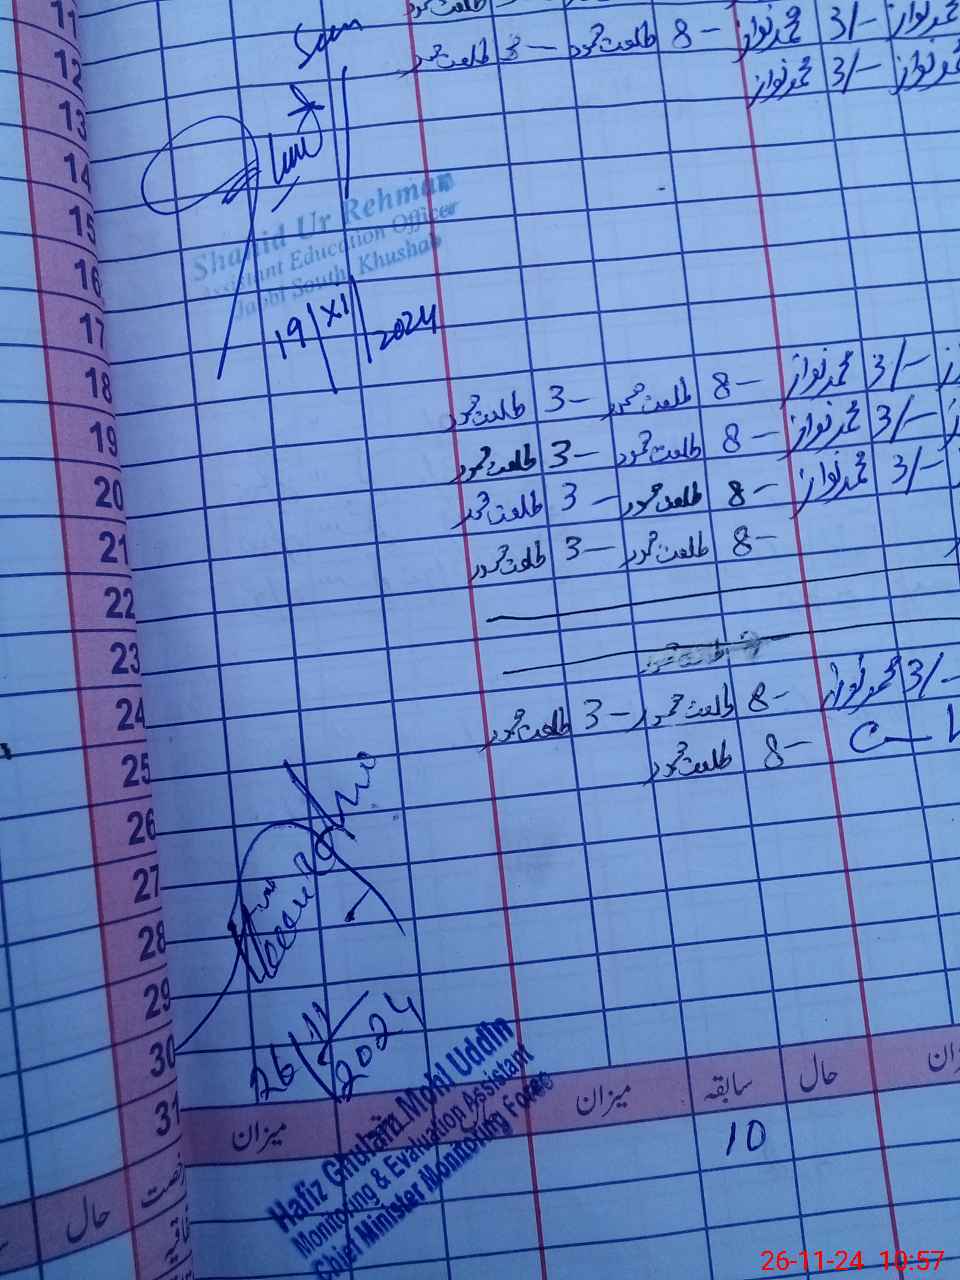 11
12 طلعت محمود 3 — طلعت محمود 8 — محمد نواز 3/— محمد نواز
13 محمد نواز 3/— محمد نواز
14
15
Shahid Ur Rehman
Assistant Education Officer
Jabbi South, Khushab
16
17
19/XI/2024
18 طلعت محمود 3 — طلعت محمود 8 — محمد نواز 3/—
19 طلعت محمود 3 — طلعت محمود 8 — محمد نواز 3/—
20 طلعت محمود 3 — طلعت محمود 8 — محمد نواز 3/—
21 طلعت محمود 3 — طلعت محمود 8 —
22
23
24 طلعت محمود 3 — طلعت محمود 8 — محمد نواز 3/—
25 طلعت محمود 8 —
26
27
28
29
30
26/11/2024
31
میزان میزان سابقہ حال
10
Hafiz Ghulam Mohi Uddin
Monitoring & Evaluation Assistant
Chief Minister Monitoring Force
حال
26-11-24 10:57